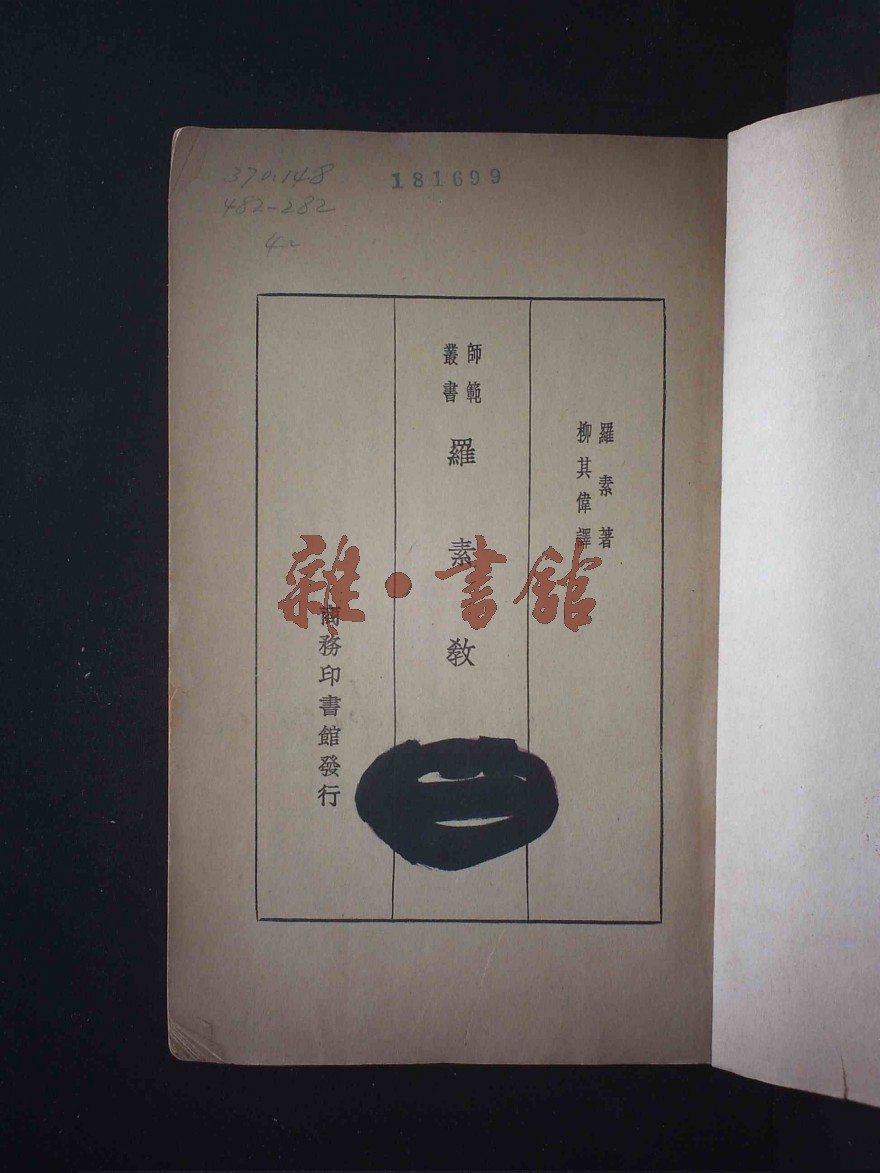 370.148
181699
482-282
羅素著
柳其偉譯
師範
叢書
羅素教
商務印書館發行
雜·書館